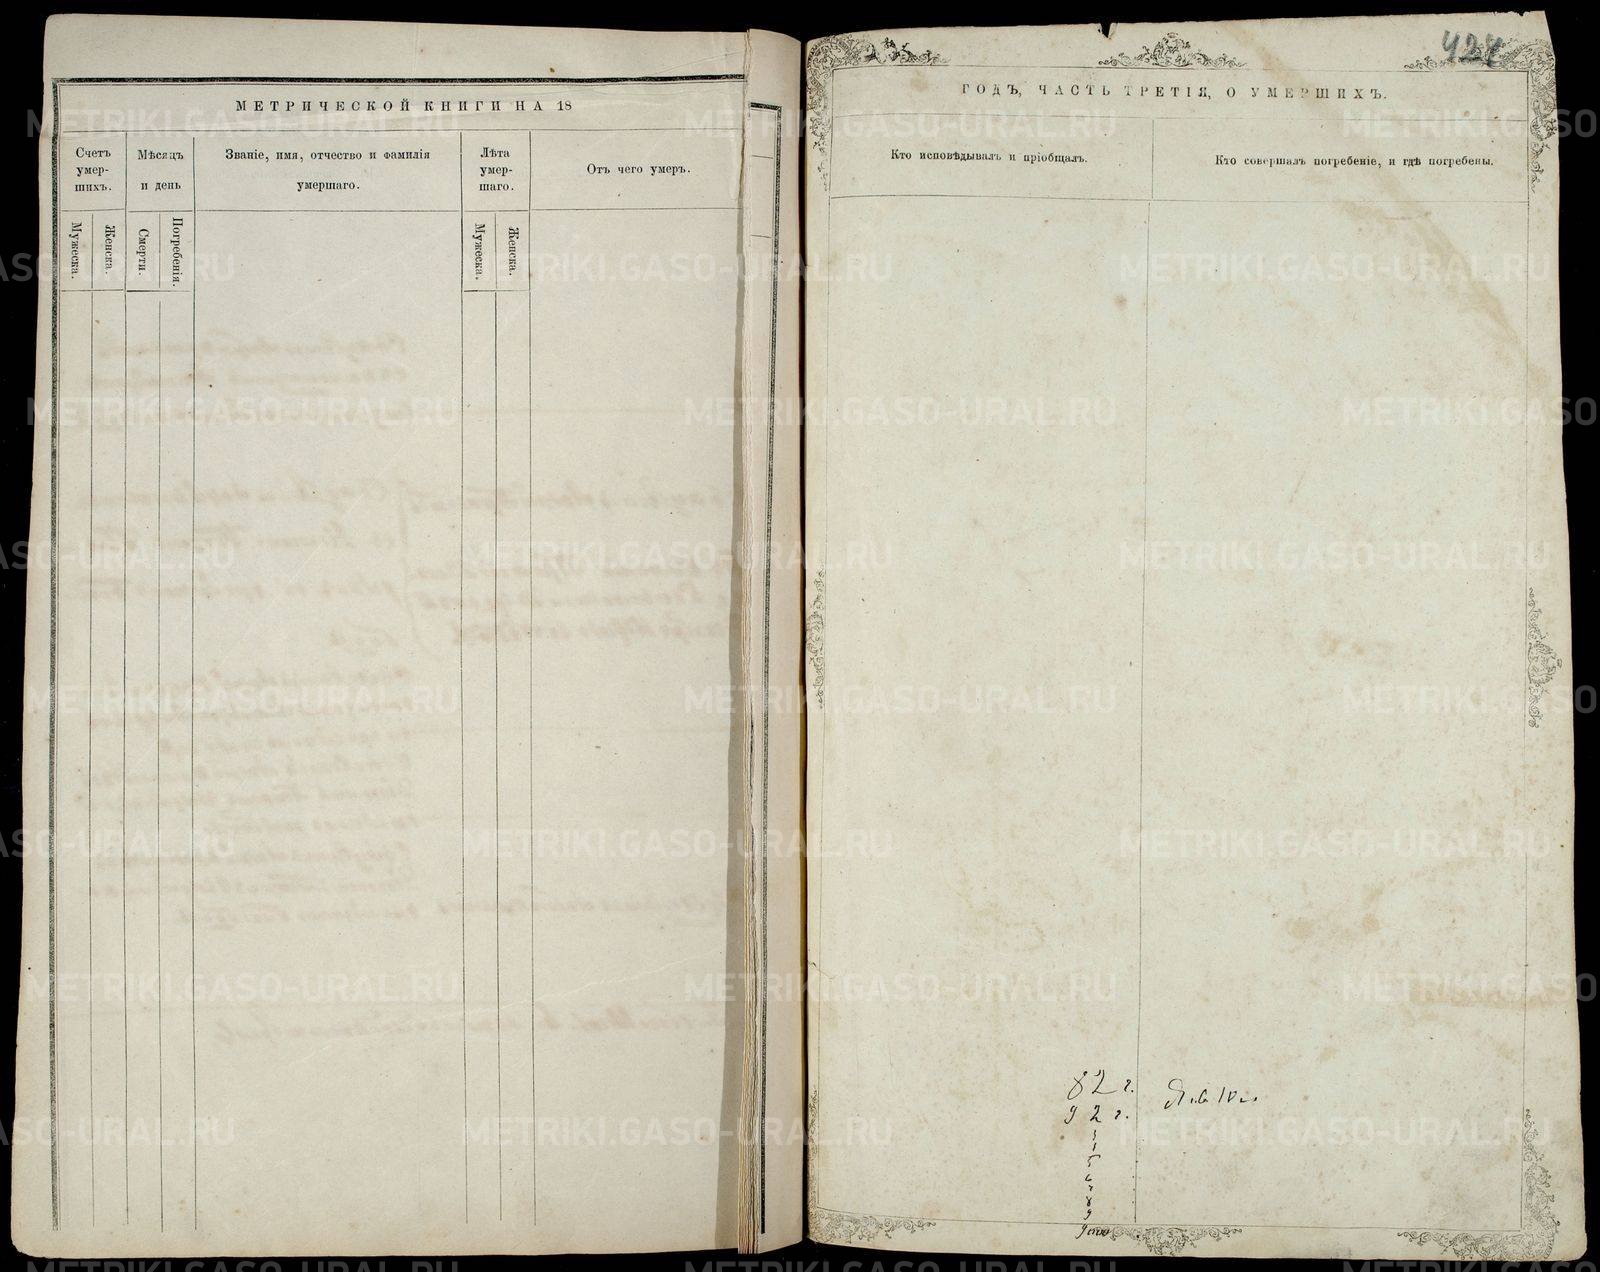 МЕТРИЧЕСКОЙ КНИГИ НА 18
Счетъ умер-шихъ.
Мѣсяцъ и день
Званіе, имя, отчество и фамилія умершаго.
Лѣта умер-шаго.
Отъ чего умеръ.
Мужеска.
Женска.
Смерти.
Погребенія.
Мужеска.
Женска.
ГОДЪ, ЧАСТЬ ТРЕТІЯ, О УМЕРШИХЪ.
Кто исповѣдывалъ и пріобщалъ.
Кто совершалъ погребеніе, и гдѣ погребены.
82 г.
92 г.
5
6
7
8
9
METRIKI.GASO-URAL.RU